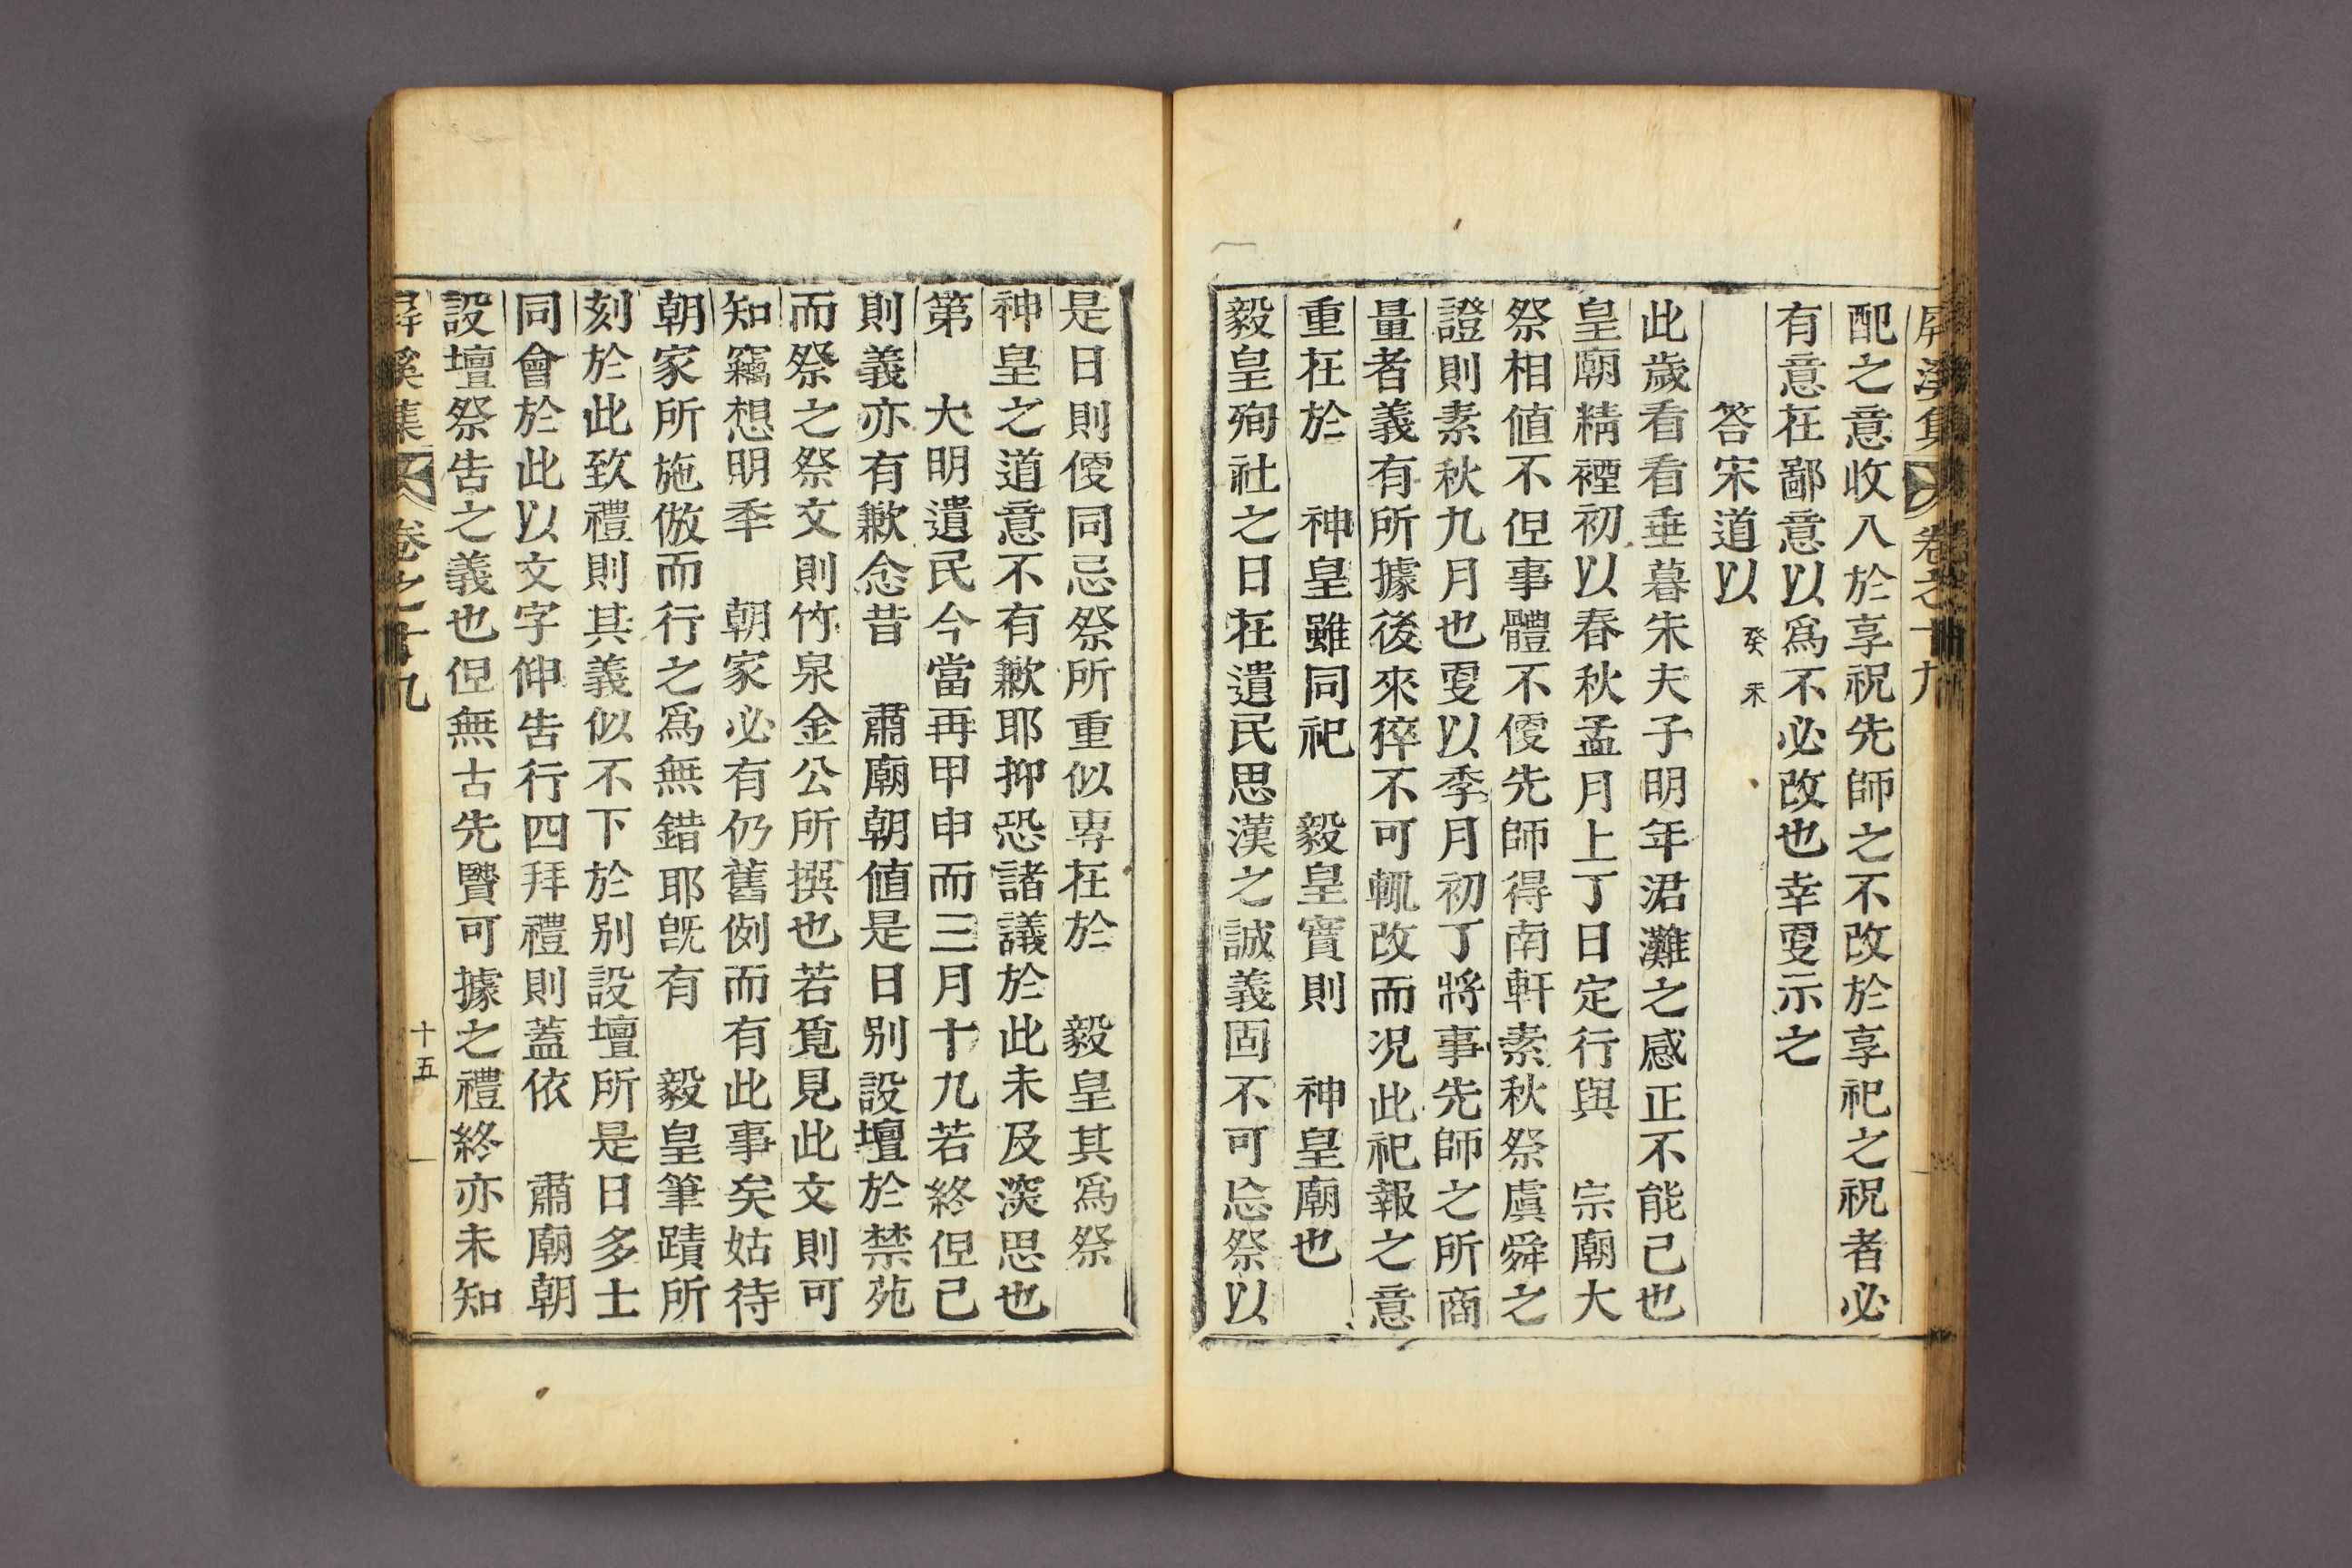 屛溪集 卷之十九
配之意收入於享祝先師之不改於享祀之祝者必
有意在鄙意以爲不必改也幸更示之
答宋道以 癸未
此歲看看垂暮朱夫子明年涒灘之感正不能已也
皇廟精禋初以春秋孟月上丁日定行與 宗廟大
祭相値不但事體不便先師得南軒素秋祭虞舜之
證則素秋九月也更以季月初丁將事先師之所商
量者義有所據後來猝不可輒改而况此祀報之意
重在於 神皇雖同祀 毅皇實則 神皇廟也
毅皇殉社之日在遺民思漢之誠義固不可忘祭以
是日則便同忌祭所重似專在於 毅皇其爲祭
神皇之道意不有歉耶抑恐諸議於此未及深思也
第 大明遺民今當再甲申而三月十九若終但已
則義亦有歉念昔 肅廟朝値是日別設壇於禁苑
而祭之祭文則竹泉金公所撰也若覓見此文則可
知竊想明年 朝家必有仍舊例而有此事矣姑待
朝家所施倣而行之爲無錯耶旣有 毅皇筆蹟所
刻於此致禮則其義似不下於別設壇所是日多士
同會於此以文字伸告行四拜禮則蓋依 肅廟朝
設壇祭告之義也但無古先賢可據之禮終亦未知
屛溪集 卷之十九 十五